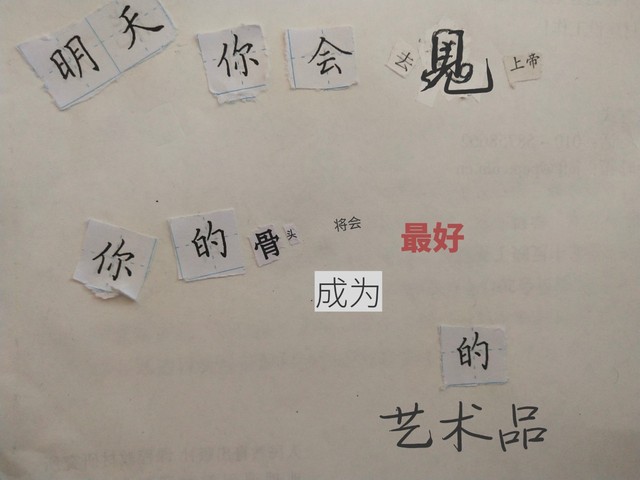 明天你会去见上帝
你的骨头将会最好
成为
的
艺术品